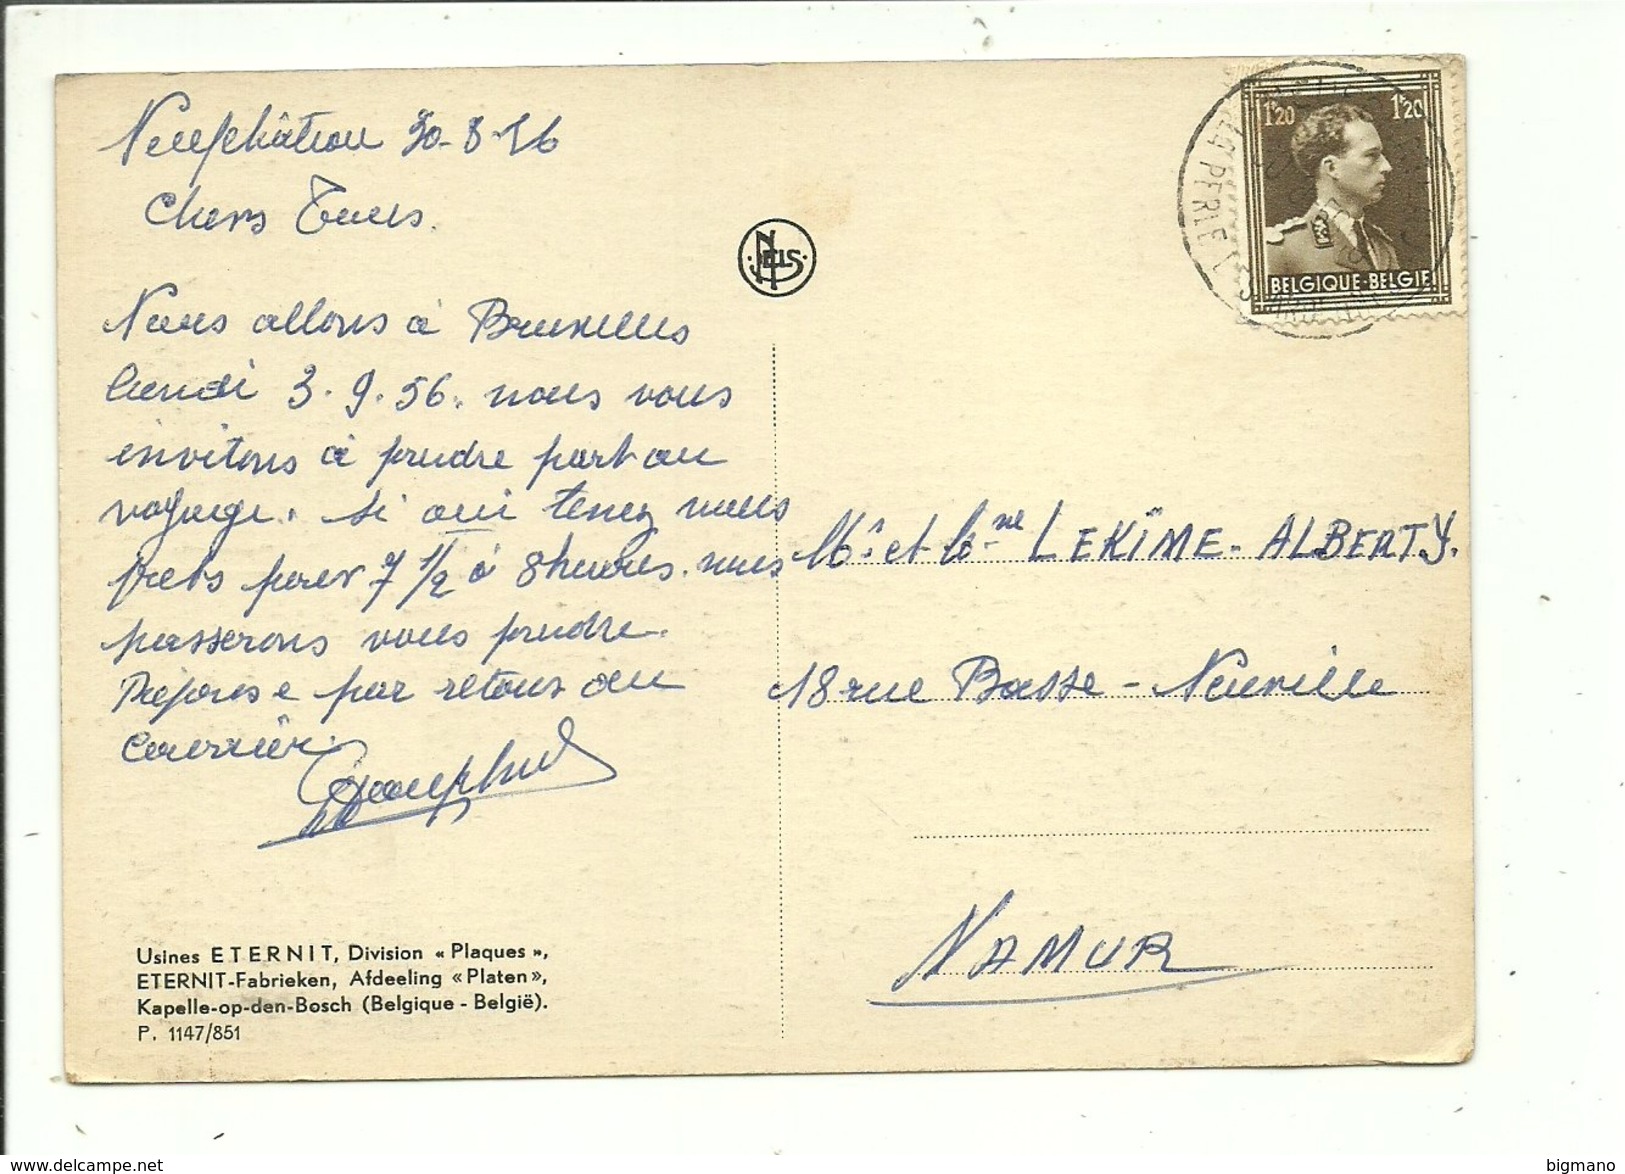 Neufchâteau 30-8-56
Chers Tous.
Nous allons à Bruxelles
lundi 3.9.56. nous vous
invitons à prendre part au
voyage. Si oui tenez vous
prets pour 7 1/2 à 8 heures. nous
passerons vous prendre.
Réponse par retour du
Courrier.
Usines ETERNIT, Division « Plaques »,
ETERNIT-Fabrieken, Afdeeling «Platen»,
Kapelle-op-den-Bosch (Belgique - België).
P. 1147/851
NELS
1F20 1F20
BELGIQUE-BELGIE
LA PERLE
Mr et Mme LEKÎME-ALBERTY.
18 rue Basse-Neuville
NAMUR
bigmano